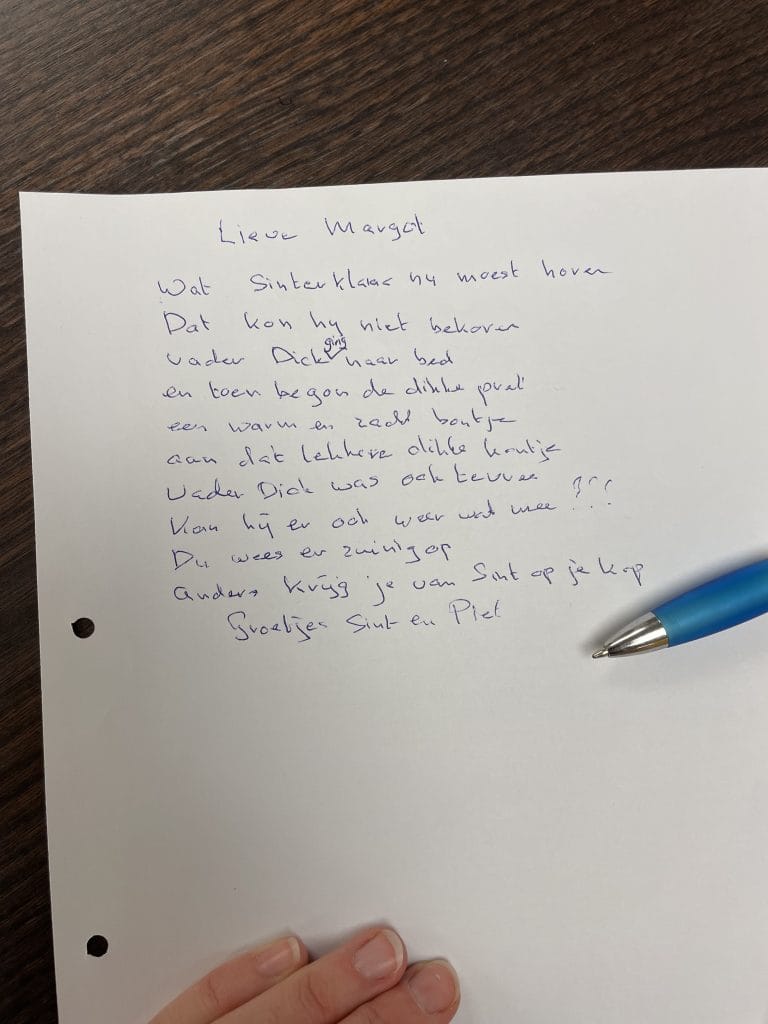 Lieve Margot
Wat Sinterklaas ny moest horen
Dat kon hy niet bekoren
Vader Dick ging naar bed
en toen begon de dikke pret
een warm en zacht bontje
aan dat lekkere dikke kontje
Vader Dick was ook tevree
Kan hij er ook weer wat mee ???
Du wees er zuinig op
anders krijg je van Sint op je kop
Groetjes Sint en Piet